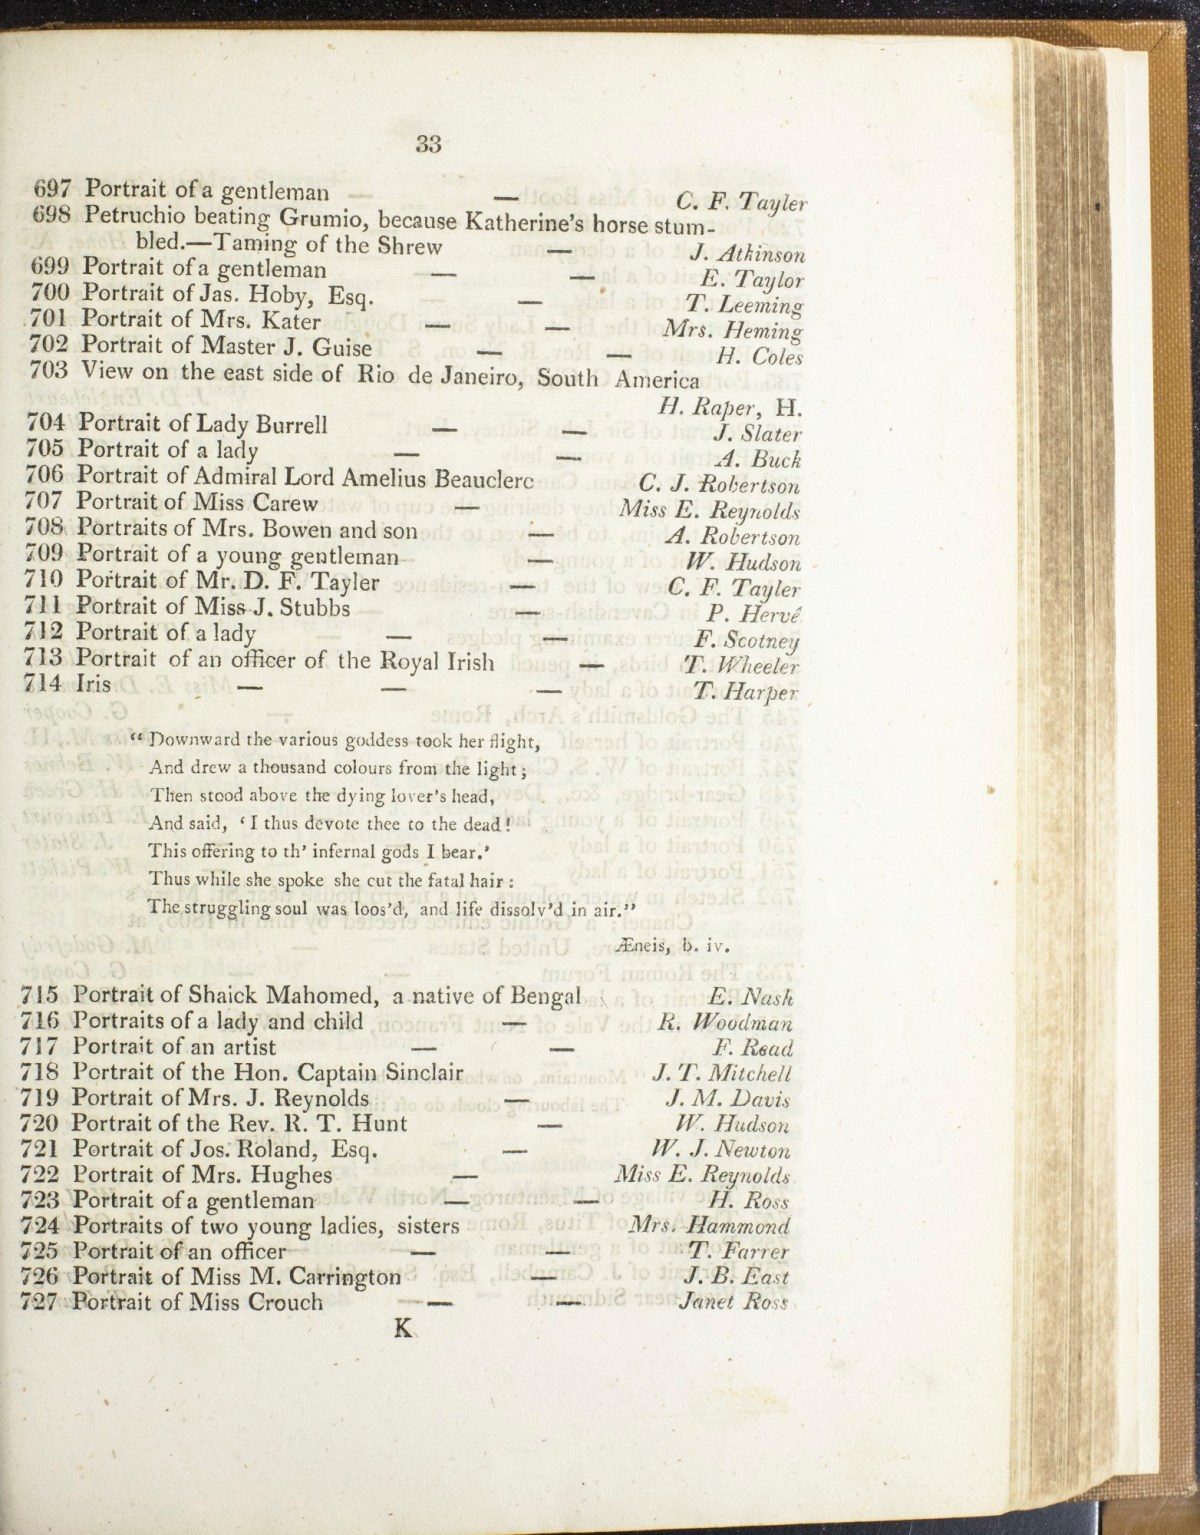 33
697 Portrait of a gentleman — C. F. Tayler
698 Petruchio beating Grumio, because Katherine's horse stum-
bled.—Taming of the Shrew — J. Atkinson
699 Portrait of a gentleman — — E. Taylor
700 Portrait of Jas. Hoby, Esq. — T. Leeming
701 Portrait of Mrs. Kater — — Mrs. Heming
702 Portrait of Master J. Guise — — H. Coles
703 View on the east side of Rio de Janeiro, South America
H. Raper, H.
704 Portrait of Lady Burrell — — J. Slater
705 Portrait of a lady — — A. Buck
706 Portrait of Admiral Lord Amelius Beauclerc C. J. Robertson
707 Portrait of Miss Carew — Miss E. Reynolds
708 Portraits of Mrs. Bowen and son — A. Robertson
709 Portrait of a young gentleman — W. Hudson
710 Portrait of Mr. D. F. Tayler — C. F. Tayler
711 Portrait of Miss J. Stubbs — P. Hervé
712 Portrait of a lady — — F. Scotney
713 Portrait of an officer of the Royal Irish — T. Wheeler
714 Iris — — — T. Harper
“ Downward the various goddess took her flight,
And drew a thousand colours from the light ;
Then stood above the dying lover's head,
And said, ‘ I thus devote thee to the dead !
This offering to th' infernal gods I bear.’
Thus while she spoke she cut the fatal hair :
The struggling soul was loos'd, and life dissolv'd in air.”
Æneis, b. iv.
715 Portrait of Shaick Mahomed, a native of Bengal E. Nash
716 Portraits of a lady and child — R. Woodman
717 Portrait of an artist — — F. Read
718 Portrait of the Hon. Captain Sinclair J. T. Mitchell
719 Portrait of Mrs. J. Reynolds — J. M. Davis
720 Portrait of the Rev. R. T. Hunt — W. Hudson
721 Portrait of Jos. Roland, Esq. — W. J. Newton
722 Portrait of Mrs. Hughes — Miss E. Reynolds
723 Portrait of a gentleman — — H. Ross
724 Portraits of two young ladies, sisters Mrs. Hammond
725 Portrait of an officer — — T. Farrer
726 Portrait of Miss M. Carrington — J. B. East
727 Portrait of Miss Crouch — — Janet Ross
K